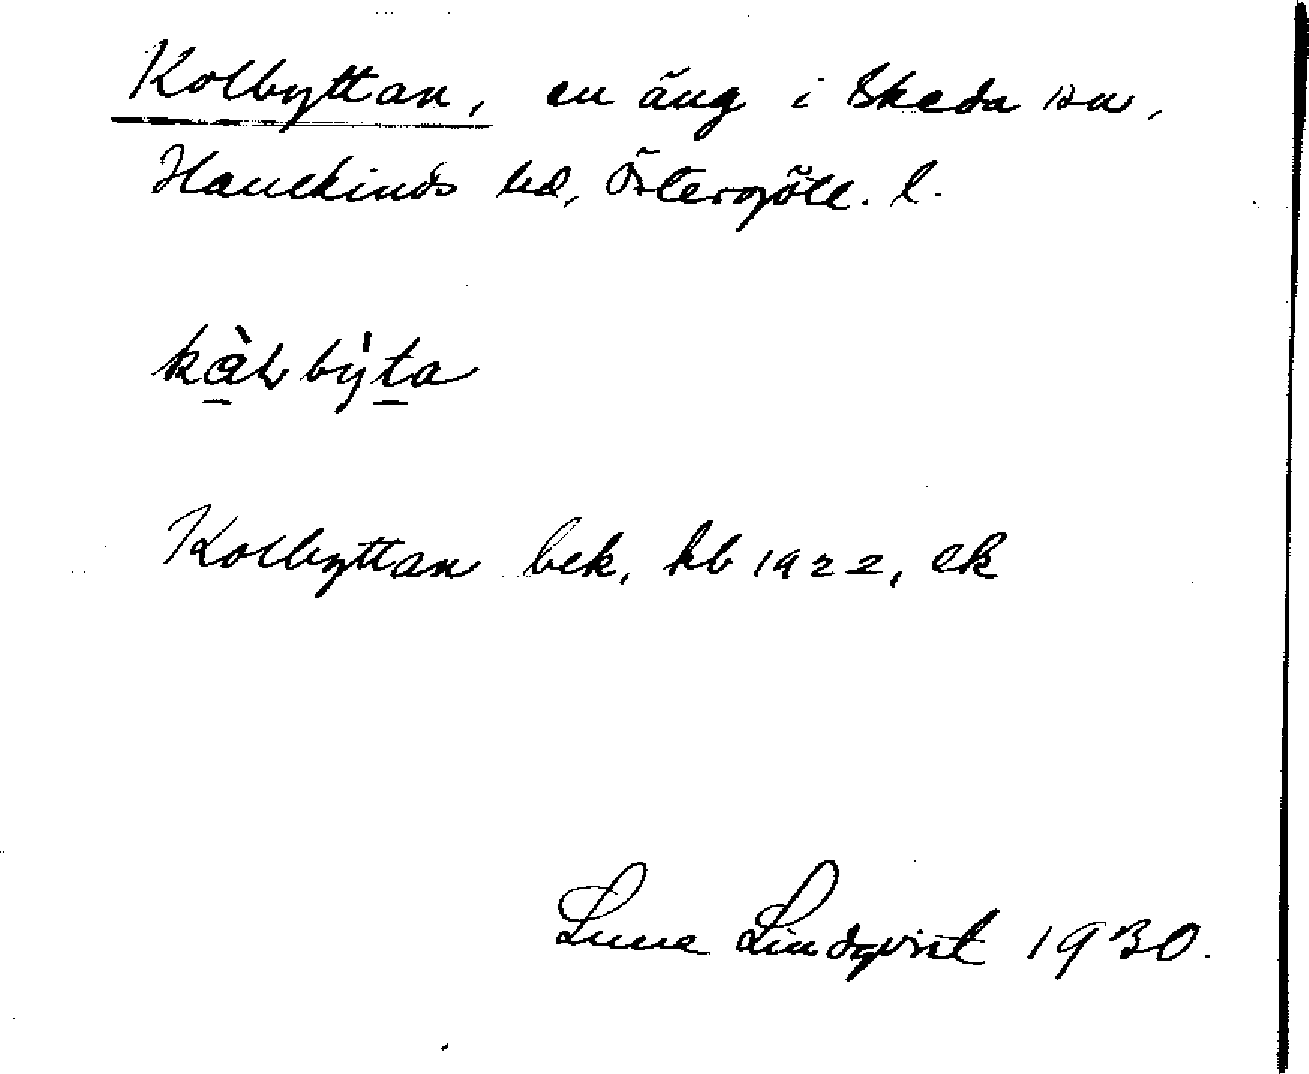 Kolbyttan, en äng i Skeda sn,
Hanekinds hd, Östergötl. l.
kàl bỳta
Kolbyttan bek. hb 1922, ek
Lindqvist 1930.